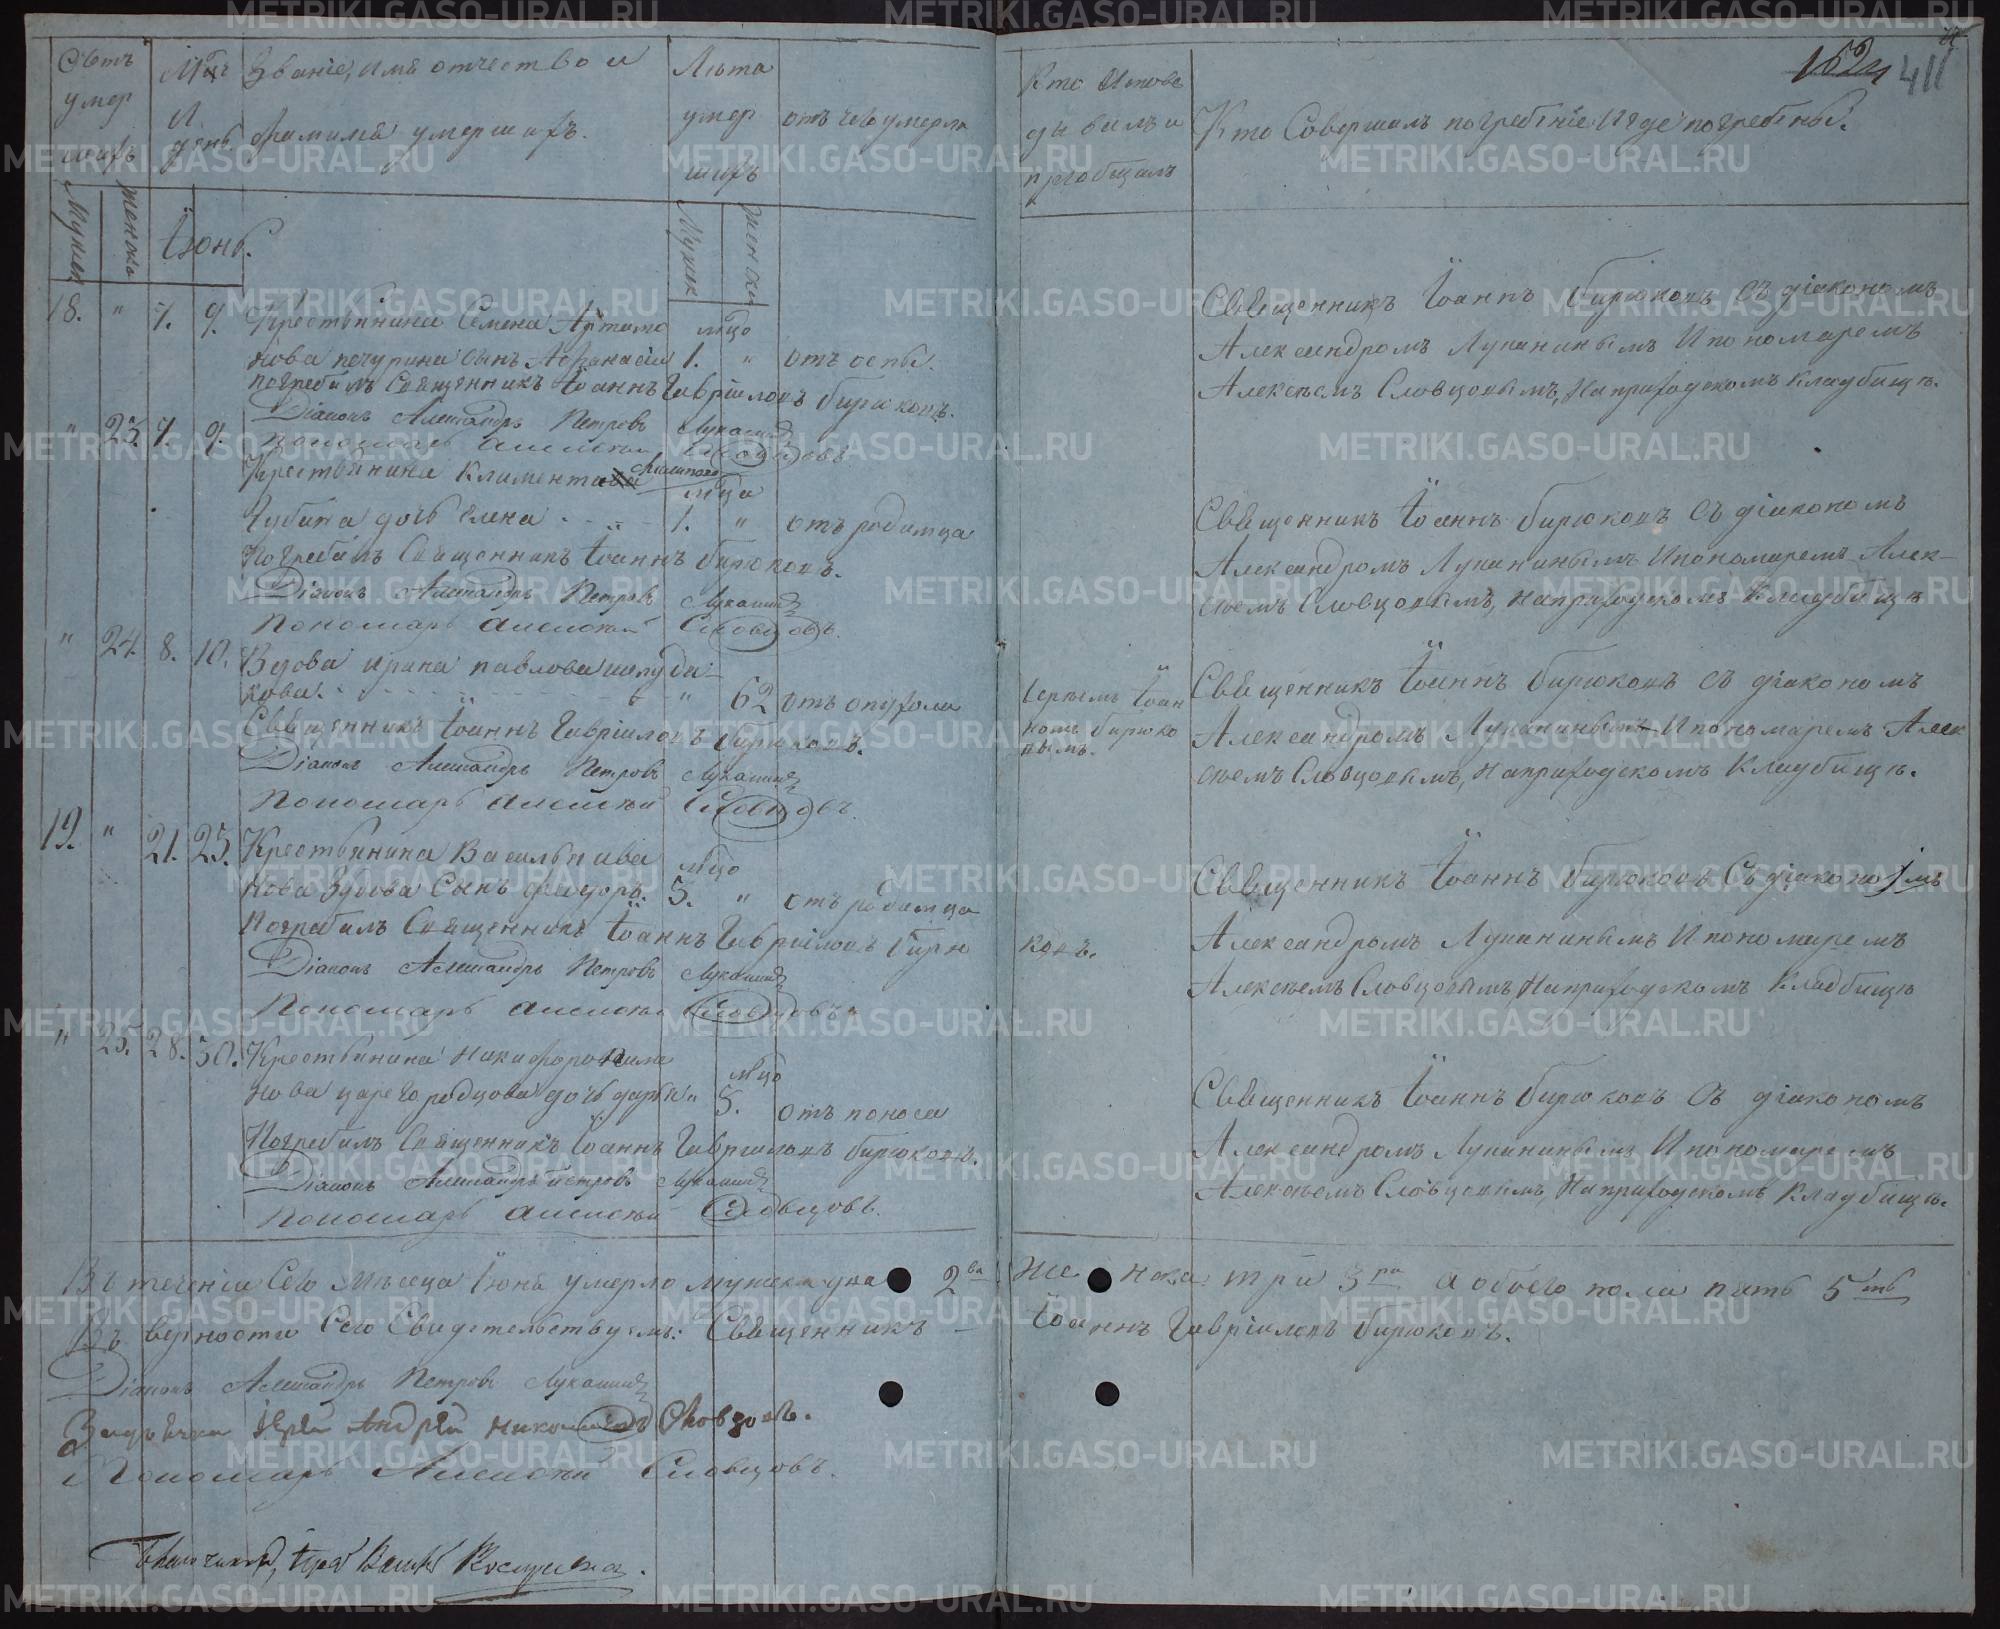 Счетъ умер шихъ
Мца и день
Званіе, имя отчество и фамилія умершихъ.
Лѣта умер шихъ
отъ чего умерли
Кто Исповѣ дывалъ и пріобщалъ
Кто Совершалъ погребеніе и где погребены.
411
Мужск женска
Іюнь.
Мужск женски
18. " 7. 9. Крестьянина Семена Артамо мѣцо
нова печурина сынъ Афанасій 1. " отъ оспы.
Священникъ Іоаннъ Бирюковъ съ діакономъ
Александромъ Лукининымъ и пономаремъ
Алексѣемъ Словцовымъ, на приходскомъ кладбищѣ.
погребалъ Священникъ Іоаннъ Гавріиловъ бирюковъ.
Діаконъ Александръ Петровъ
Пономарь Алексѣй Словцовъ
" 23. 7. 9. Крестьянина Климента
мѣца
дочь Елена 1. " отъ родимца
Священникъ Іоаннъ Бирюковъ съ діакономъ
Александромъ Лукининымъ и пономаремъ Алек-
сѣемъ Словцовымъ, на приходскомъ кладбищѣ
Погребалъ Священникъ Іоаннъ бирюковъ.
Діаконъ Александръ Петровъ
Пономарь Алексѣй Словцовъ.
" 24. 8. 10. Вдова ирина павлова шелуди-
кова. " 62 отъ опухоли
Іереемъ Іоан
номъ бирюко
вымъ.
Священникъ Іоаннъ Бирюковъ съ діакономъ
Александромъ Лукининымъ и пономаремъ Алек
сѣемъ Словцовымъ, на приходскомъ кладбищѣ.
Священникъ Іоаннъ Гавріиловъ бирюковъ.
Діаконъ Александръ Петровъ
Пономарь Алексѣй Словцовъ
19. " 21. 23. Крестьянина Василья ива мѣцо
нова Зубова Сынъ Феодоръ. 5. " отъ родимца
Священникъ Іоаннъ Бирюковъ Съ діакономъ
Александромъ Лукининымъ и пономаремъ
Алексѣемъ Словцовымъ, на приходскомъ кладбищѣ
Погребалъ Священникъ Іоаннъ Гавріиловъ бирю ковъ.
Діаконъ Александръ Петровъ
Пономарь Алексѣй Словцовъ
" 25. 28. 30. Крестьянина Никифора мѣцо
нова царегородцова дочь дарья " 5. отъ поноса
Священникъ Іоаннъ Бирюковъ съ діакономъ
Александромъ Лукининымъ и пономаремъ
Алексѣемъ Словцовымъ, на приходскомъ кладбищѣ.
Погребалъ Священникъ Іоаннъ Гавріиловъ бирюковъ.
Діаконъ Александръ Петровъ
Пономарь Алексѣй Словцовъ.
Въ теченіи Сего Мѣсеца Іюня умерло мужска два 2ва женска три 3ри а обоего пола пять 5ть
Въ верности Сего Свидетельствуемъ: Священникъ Іоаннъ Гавріиловъ Бирюковъ.
Діаконъ Александръ Петровъ
Іерей Андрей Словцовъ.
Пономарь Алексѣй Словцовъ.
METRIKI.GASO-URAL.RU